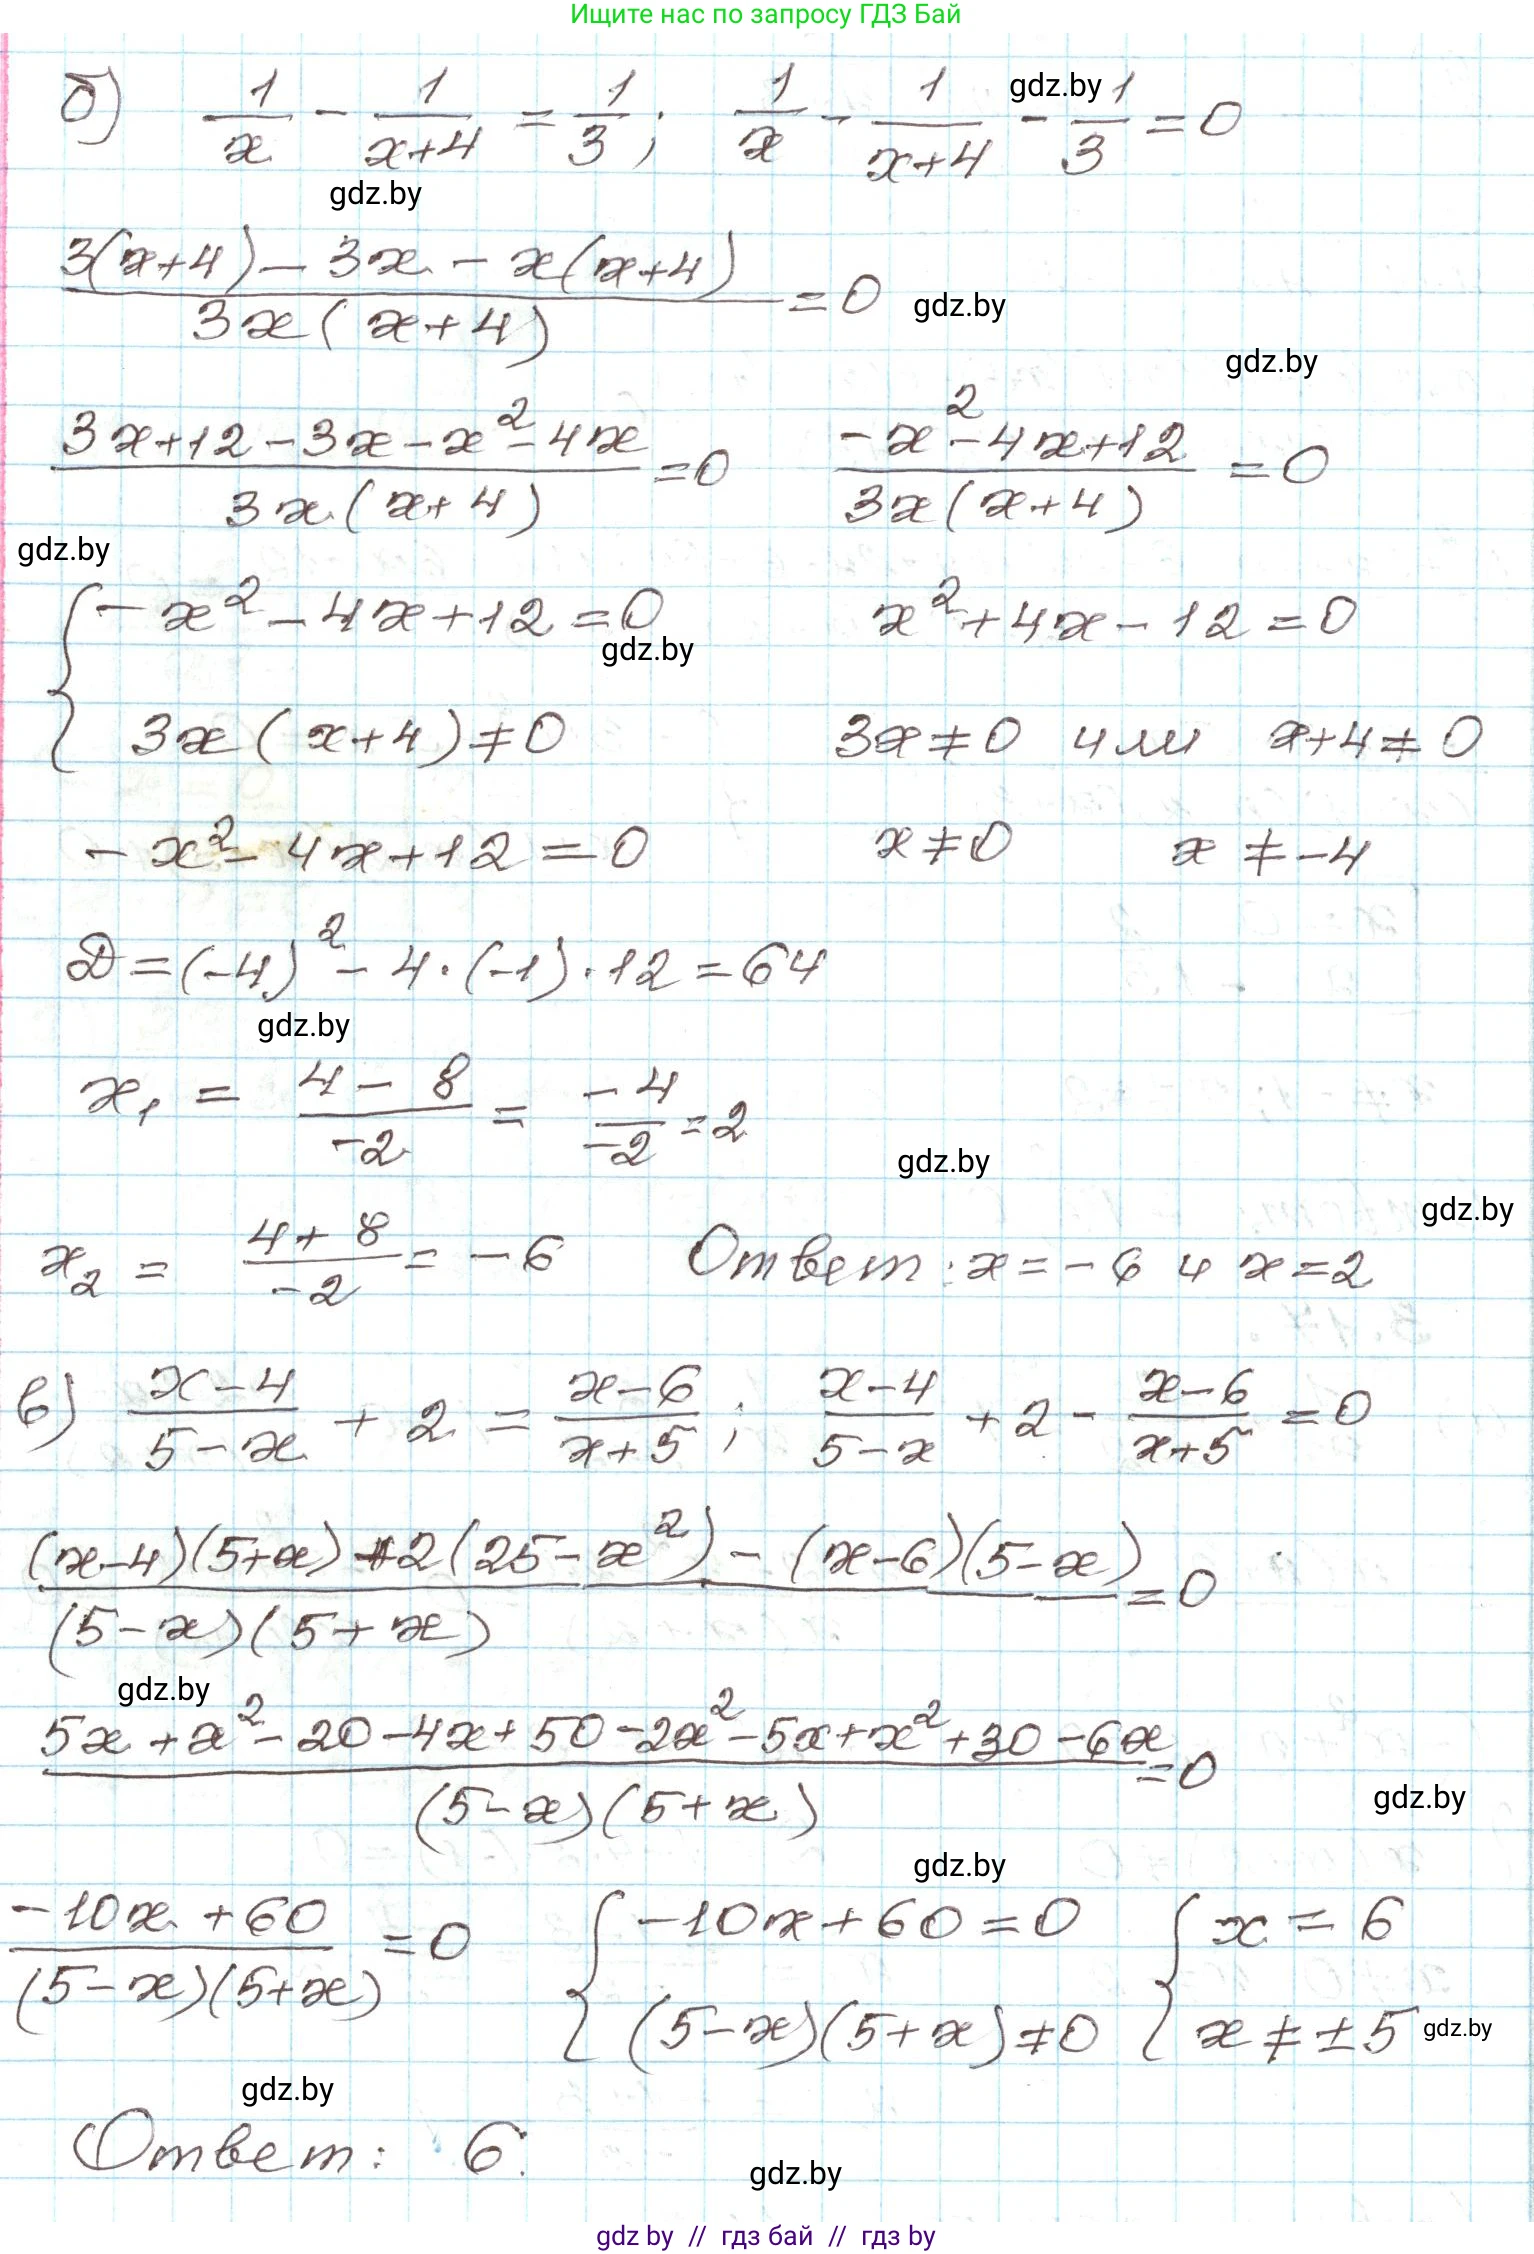 Ищите нас по запросу ГДЗ Бай
б) 1/x - 1/(x+4) = 1/3; 1/x - 1/(x+4) - 1/3 = 0
gdz.by
gdz.by
(3(x+4) - 3x - x(x+4))/(3x(x+4)) = 0
gdz.by
gdz.by
(3x+12-3x-x²-4x)/(3x(x+4)) = 0 (-x²-4x+12)/(3x(x+4)) = 0
gdz.by
{ -x²-4x+12=0 x²+4x-12=0
gdz.by
3x(x+4)≠0 3x≠0 или x+4≠0
-x²-4x+12=0 x≠0 x≠-4
D=(-4)²-4·(-1)·12=64
gdz.by
x₁ = (4-8)/(-2) = (-4)/(-2) = 2
gdz.by
gdz.by
x₂ = (4+8)/(-2) = -6 Ответ: x=-6 и x=2
в) (x-4)/(5-x) + 2 = (x-6)/(x+5); (x-4)/(5-x) + 2 - (x-6)/(x+5) = 0
((x-4)(5+x)+2(25-x²)-(x-6)(5-x))/((5-x)(5+x)) = 0
gdz.by
(5x+x²-20-4x+50-2x²-5x+x²+30-6x)/((5-x)(5+x)) = 0
gdz.by
gdz.by
(-10x+60)/((5-x)(5+x)) = 0 { -10x+60=0 { x=6
(5-x)(5+x)≠0 x≠±5
gdz.by
gdz.by
Ответ: 6.
gdz.by
gdz by // гдз бай // гдз by